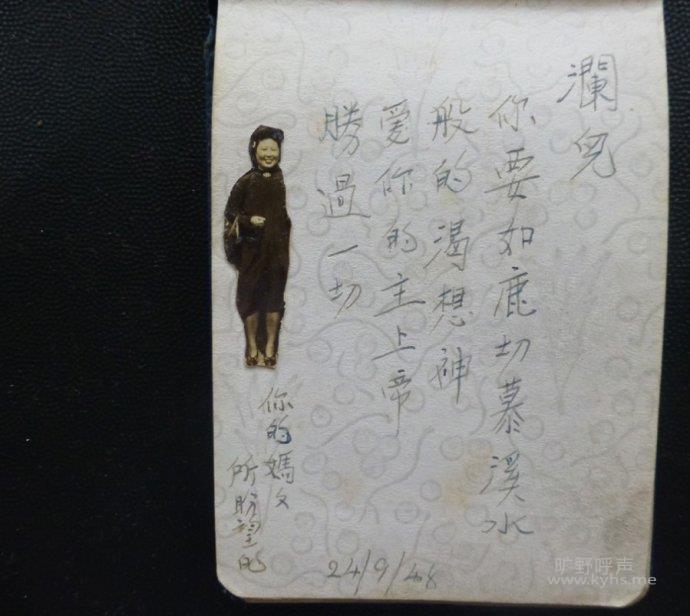 瀾兒
你要如鹿切慕溪水
般的渴想神
愛你的主上帝
勝過一切
你的媽
所盼望的
24/9/48
旷野呼声
www.kyhs.me